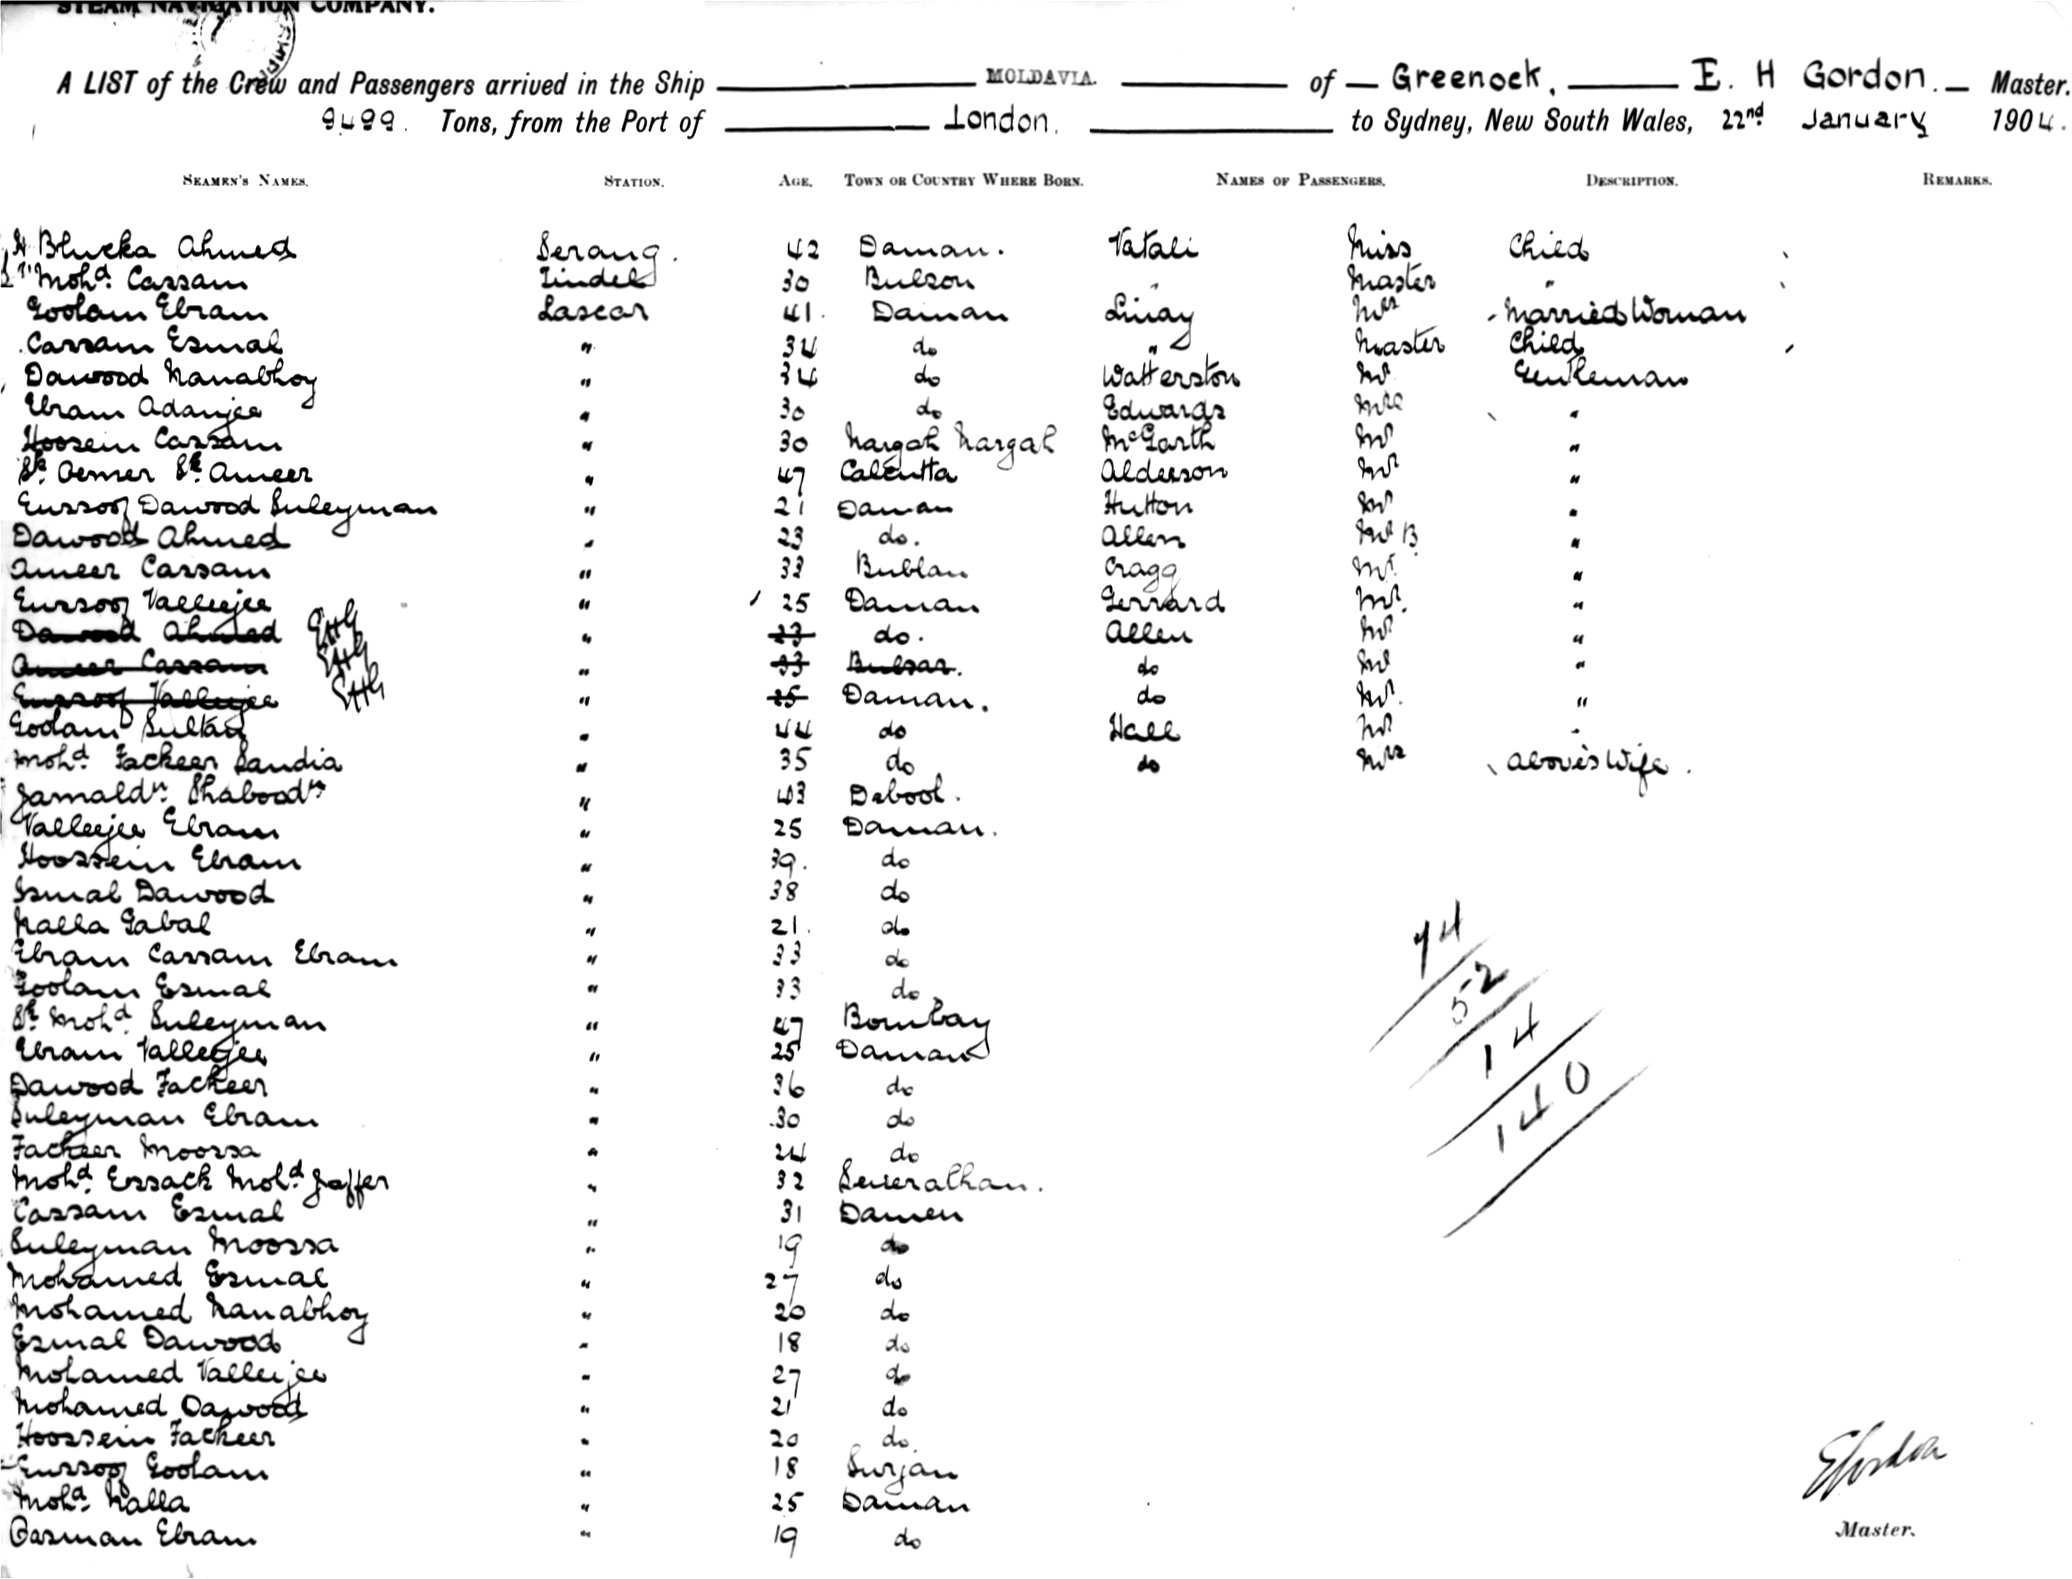 STEAM NAVIGATION COMPANY.
A LIST of the Crew and Passengers arrived in the Ship MOLDAVIA. of Greenock, E. H Gordon. Master.
9499. Tons, from the Port of London. to Sydney, New South Wales, 22nd January 1904.
SEAMEN'S NAMES. STATION. AGE. TOWN OR COUNTRY WHERE BORN. NAMES OF PASSENGERS. DESCRIPTION. REMARKS.
Ahmed Serang. 42 Daman. Natali Miss Child
Mohd. Cassam Tindel 30 Bulson " Master "
Goolam Ebram Lascar 41. Daman Linay Mrs Married Woman
Cassam Esmal " 34 do " Master Child
Dawood Nanabhoy " 34 do Watterston Mr Gentleman
Ebram Adamjee " 30 do Edwards "
Hoosein Cassam " 30 Nargah Nargah McGarth Mr "
Sk. Oemer Sk. Ameer " 47 Calcutta Alderson Mr "
Eussoof Dawood Suleyman " 21 Daman Hutton Mr "
Dawood Ahmed " 23 do. Allen Mr B "
Ameer Cassam " 33 Bublan Cragg Mr. "
Eussoof Valleejee " 25 Daman Gerrard Mr. "
Dawood Ahmed EHG " 23 do. Allen Mr "
Ameer Cassam EHG " 33 Bulsar. do Mr "
Eussoof Valleejee EHG " 25 Daman. do Mr. "
Goolam Sultan " 44 do Hall Mr "
Mohd. Fackeer Sandia " 35 do do Mrs above's Wife.
Jamaldn. Shaboodn " 43 Dabool.
Valleejee Ebram " 25 Daman.
Hoossein Ebram " 39. do
Esmal Dawood " 38 do
Nalla Gabal " 21. do
Ebram Cassam Ebram " 33 do
Goolam Esmal " 33 do
Sk. Mohd. Suleyman " 47 Bombay
Ebram Valleejee " 25 Daman
Dawood Fackeer " 36 do
Suleyman Ebram " 30 do
Fackeer Moossa " 24 do
Mohd. Essack Mohd. Jaffer " 32
Cassam Esmal " 31 Damen
Suleyman Moossa " 19 do
Mohamed Esmal " 27 do
Mohamed Nanabhoy " 20 do
Esmal Dawood " 18 do
Mohamed Valleejee " 27 do
Mohamed Dawood " 21 do
Hoossein Fackeer " 20 do.
Eussoof Goolam " 18 Surjan
Mohd. Nalla " 25 Daman
Oasman Ebram " 19 do
74
52
14
140
EGordon
Master.